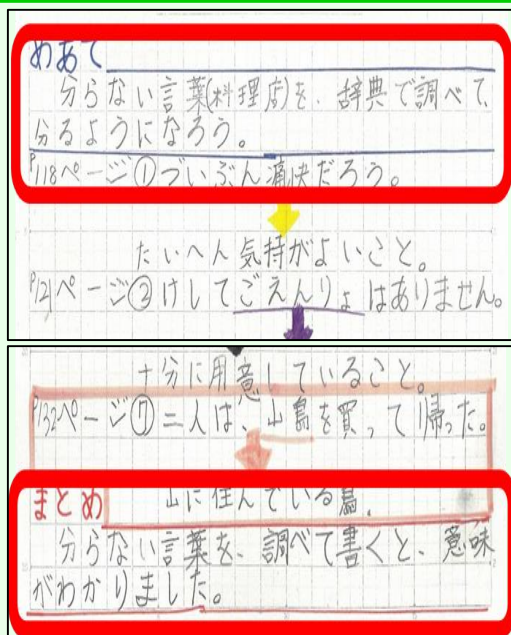 めあて
分らない言葉(料理店)を、辞典で調べて、
分るようになろう。
P118ページ①づいぶん痛快だろう。
たいへん気持がよいこと。
P121ページ②けしてごえんりょはありません。
十分に用意していること。
P132ページ⑦二人は、山鳥を買って帰った。
山に住んでいる鳥。
まとめ
分らない言葉を、調べて書くと、意味
がわかりました。